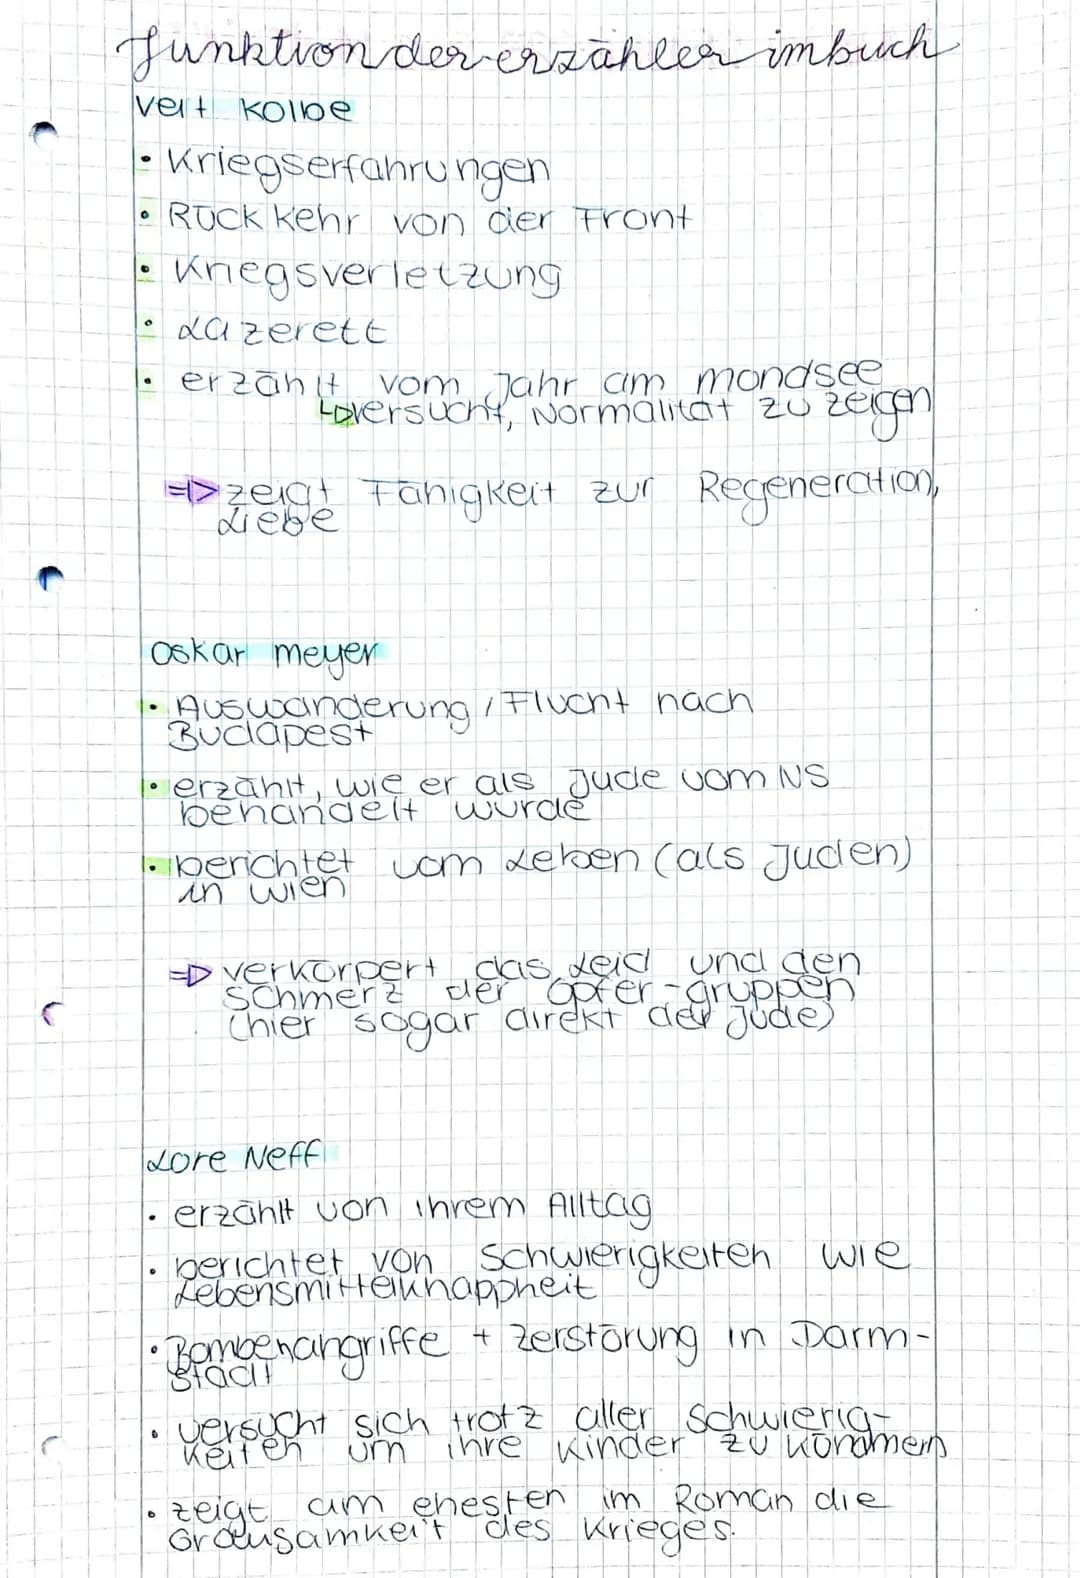 Funktion der erzähler im buch
Veit Kolbe
• Kriegserfahrungen
• Rückkehr von der Front
• Kriegsverletzung
• Lazerett
• erzählt vom Jahr am mondsee
↳versucht, Normalität zu zeigen
=> zeigt Fähigkeit zur Regeneration,
Liebe
Oskar meyer
• Auswanderung / Flucht nach
Budapest
• erzählt, wie er als Jude vom NS
behandelt wurde
• berichtet vom Leben (als Juden)
in Wien
=> verkörpert das Leid und den
Schmerz der Opfer-gruppen
(hier sogar direkt der Jude)
Lore Neff
• erzählt von ihrem Alltag
• berichtet von Schwierigkeiten wie
Lebensmittelknappheit
• Bombenangriffe + Zerstörung in Darm-
stadt
• versucht sich trotz aller Schwierig-
keiten um ihre Kinder zu kümmern
• zeigt am ehesten im Roman die
Grausamkeit des Krieges.